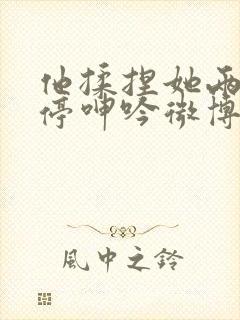 他揉捏她两
停呻吟微博
風中之鈴